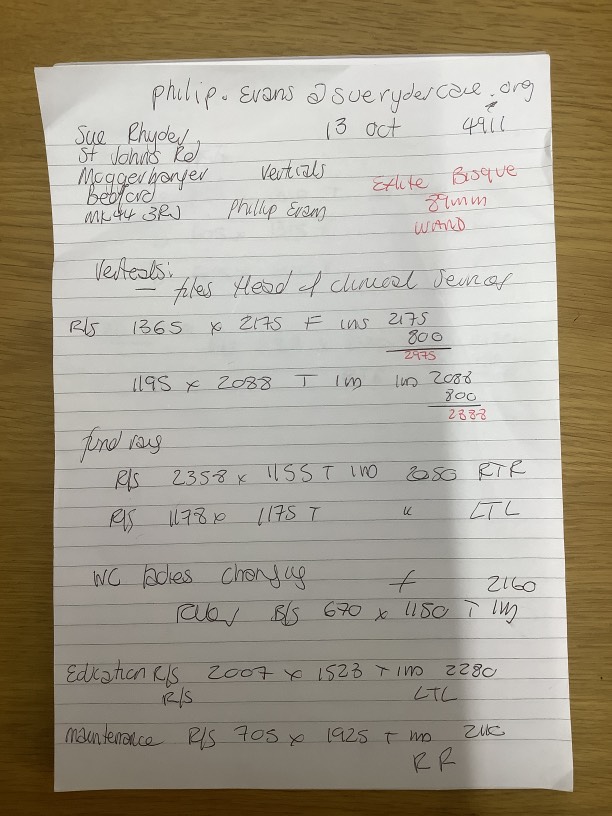 philip.Evans @ suerydercare.org
Sue Rhyder, 13 oct 4911
St Johns Rd
Moggerhanger Verticals Exlite Bisque
Bedford 89mm
MK44 3RJ Phillip Evans WAND
Verticals:
— files Head of clinical Services
R/S 1365 x 2175 F ins 2175
800
2975
1195 x 2088 T im im 2088
800
2888
fund rais
R/S 2358 x 1155 T im 2050 RTR
R/S 1178 x 1175 T " LTL
WC ladies changing 2160
R/S 670 x 1150 T im
Education R/S 2007 x 1523 T im 2280
R/S LTL
Maintenance R/S 705 x 1925 T im
RR